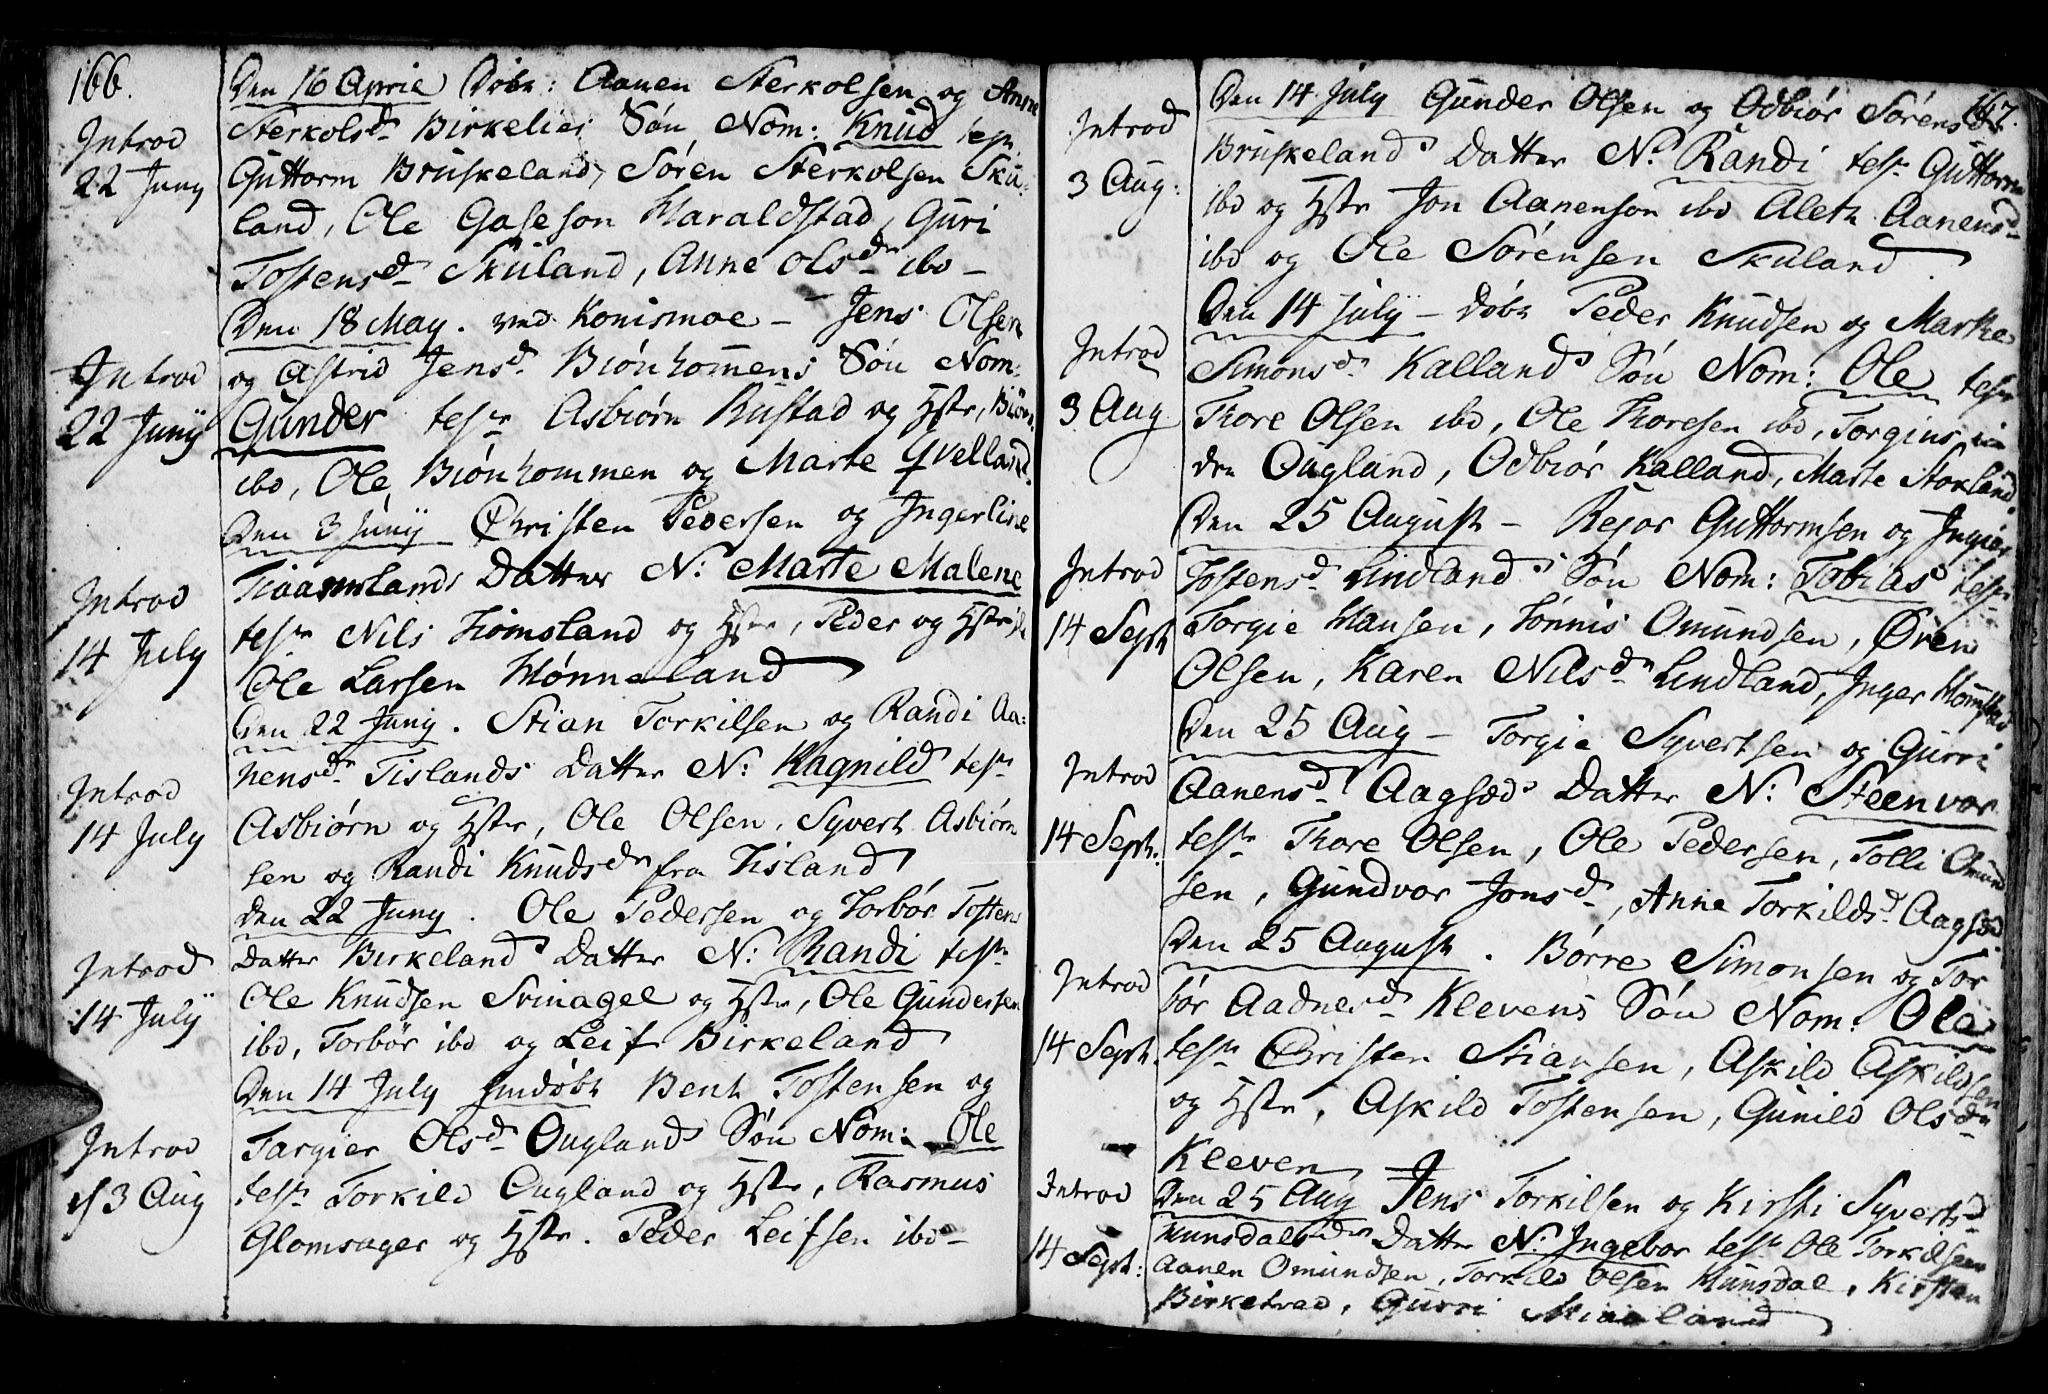 166.
Introd
22 Juny
Den 16 April Döbt: Aanen Sterkolsen og Anne
Sterkolsd. Birkelies Sön Nom: Knud test.
Guttorm Bruskeland, Sören Sterkolsen Sku-
land, Ole Gaseson Haraldstad, Guri
Tostensd. Skuland, Anne Olsd. ibd –
Introd
22 Junÿ
Den 18 May. ved Konismoe – Jens Olsen
og Astrid Jensd. Biönhom̄ens Sön Nom:
Gunder test. Asbiörn Rustad og Hstr,
ibd, Ole Biönhommen og Marte Qvelland.
Introd
14 July
Den 3 Junÿ Christen Pedersen og Ingerline
Datter N: Marte Malene
test. Nils Tiomsland og Hstr, Peder og Hstr
Ole Larsen Hönneland
Introd
14 July
Den 22 Juny. Stian Torkilsen og Randi Aa-
nensd. Tislands Datter N: Ragnild test.
Asbiörn og Hstr, Ole Olsen, Syvert Asbiörn
sen og Randi Knudsd. fra Tisland
Introd
14 Julÿ
Den 22 Juny. Ole Pedersen og Torbör Tostens
Datter Birkelands Datter N: Randi test.
Ole Knudsen Svinagel og Hstr, Ole Gundersen
ibd, Torbör ibd og Leif Birkeland
Introd
3 Aug
Den 14 July Bent Tostensen og
Targier Olsd. Ouglands Sön Nom: Ole
test. Torkild Ougland og Hstr, Rasmus
Glomsager og Hstr. Peder Leifsen ibd –
167.
Introd
3 Aug:
Den 14 July Gunder Olsen og Odbiör Sörensd.
Bruskelands Datter N. Randi test. Guttorm
ibd og Hstr Jon Aanenson ibd Aleth Aanensd.
ibd og Ole Sörensen Skuland
Introd
3 Aug
Den 14 Julÿ – döbt Peder Knudsen og Marthe
Simonsd. Kallands Sön Nom: Ole test.
Thore Olsen ibd, Ole Thoresen ibd, Torgius
Ougland, Odbiör Kalland, Marte Stokland.
Introd
14 Sept
Den 25 August – Rejor Guttormsen og Ingier
Tostensd. Lindlands Sön Nom: Tobias test.
Torgie Hansen, Tönnis Omundsen, Ören
Olsen, Karen Nilsd. Lindland, Inger
Introd
14 Sept.
Den 25 Aug – Torgie Syvertsen og Gurri
Aanensd. Aagsæds Datter N: Steenvor
test. Thore Olsen, Ole Pedersen, Tolli Omund
sen, Gundvor Jonsd., Anne Torkildsd. Aagsæd
Introd
14 Sept.
Den 25 August. Börre Simonsen og Tor
bör Aadnesd. Klevens Sön Nom: Ole
test. Christen Stiansen, Askild Askildsen
og Hstr, Askild Tostensen, Gunild Olsd.
Kleven
Introd
14 Sept:
Den 25 Aug Jens Torkilsen og Kirsti Syvertsd.
Hunsdals Datter N. Ingebor test. Ole Torkildsen
Aanen Omundsen, Torkild Olsen Hunsdal, Kirsten
Birketvad, Gurri